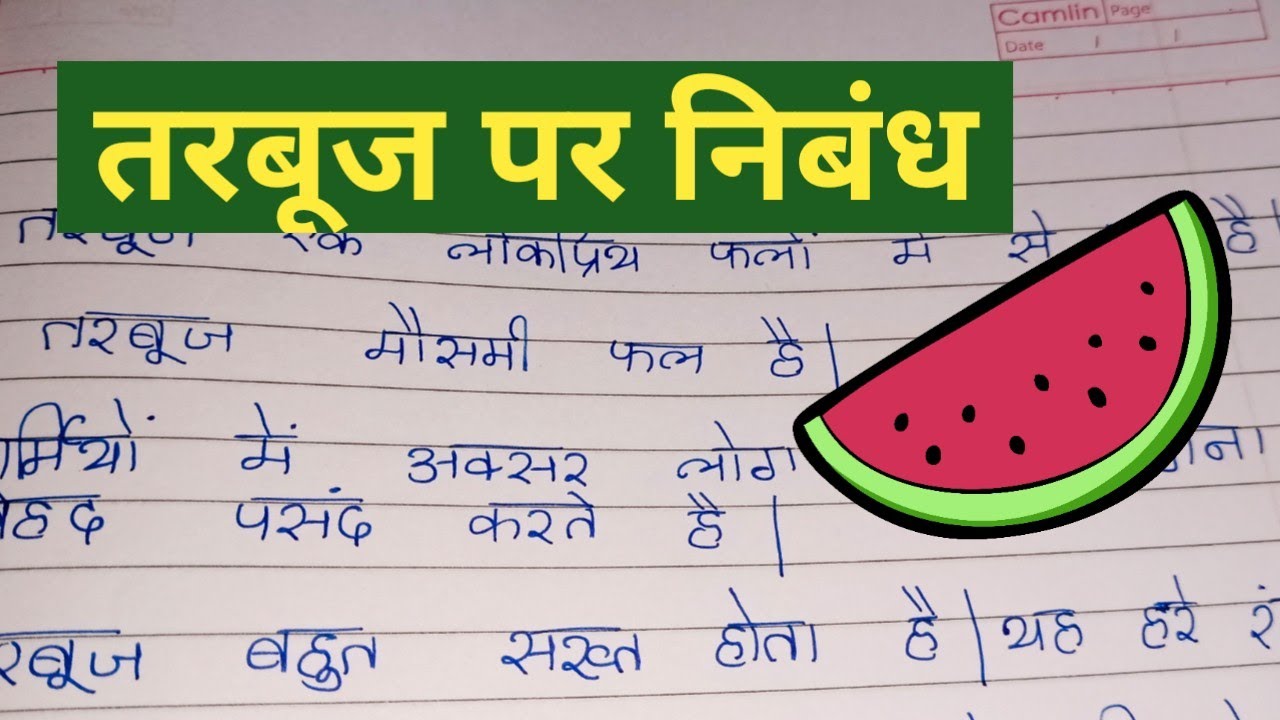 Camlin Page
Date / /
तरबूज पर निबंध
एक लोकप्रिय फलों में से है।
तरबूज मौसमी फल है।
में अक्सर लोग
पसंद करते है।
बहुत सख्त होता है। यह हरे